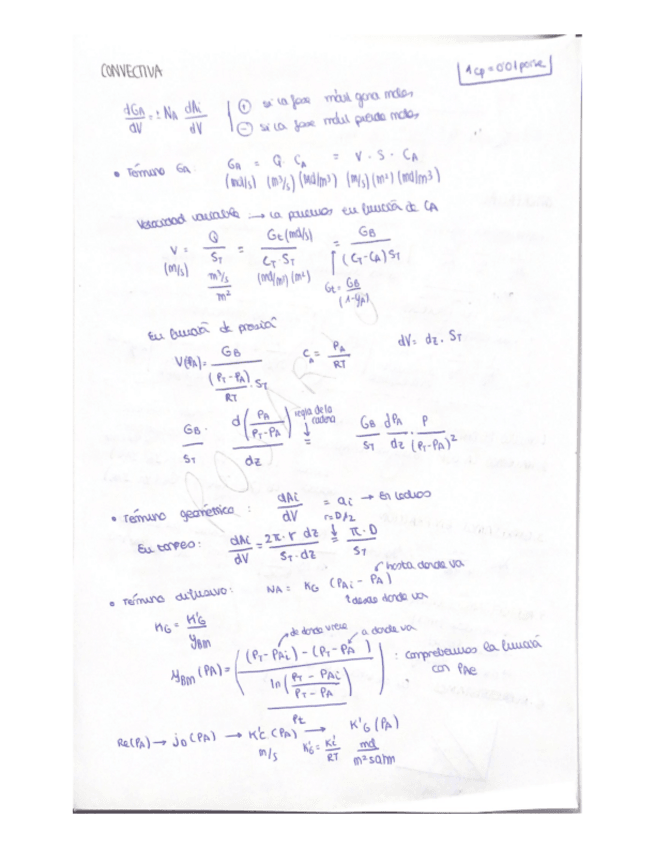 CONVECTIVA
1 cp = 0'01 poise
dGA/dV = ± NA dAi/dV
⊕ si la fase móvil gana moles
⊖ si la fase móvil pierde moles
• Término GA: GA = Q · CA = V · S · CA
(mol/s) (m³/s) (mol/m³) (m/s) (m²) (mol/m³)
Velocidad variable → la ponemos en función de CA
V = Q/ST = Gt (mol/s)/CT ST = GB/(CT-CA)ST
(m/s) m³/s/m² (mol/m³) (m²) Gt = GB/(1-yA)
En función de presión
V(PA) = GB/((PT-PA)/RT · ST) CA = PA/RT dV = dz · ST
GB/ST · d(PA/(PT-PA))/dz = regla de la cadena GB/ST dPA/dz · P/(PT-PA)²
• Término geométrico: dAi/dV = ai → En lechos
r=D/2
En torreo: dAi/dV = 2π · r dz/ST · dz = π · D/ST
hasta donde va
• Término difusivo: NA = KG (PAi - PA)
desde donde va
KG = K'G/yBm
de donde viene a donde va
yBm (PA) = ((PT-PAi) - (PT-PA)/ln(PT-PAi/PT-PA))/Pt : comprobamos la función con PAe
Re(PA) → jD (PA) → K'c (PA) → K'G (PA)
m/s K'G = K'c/RT mol/m² s atm